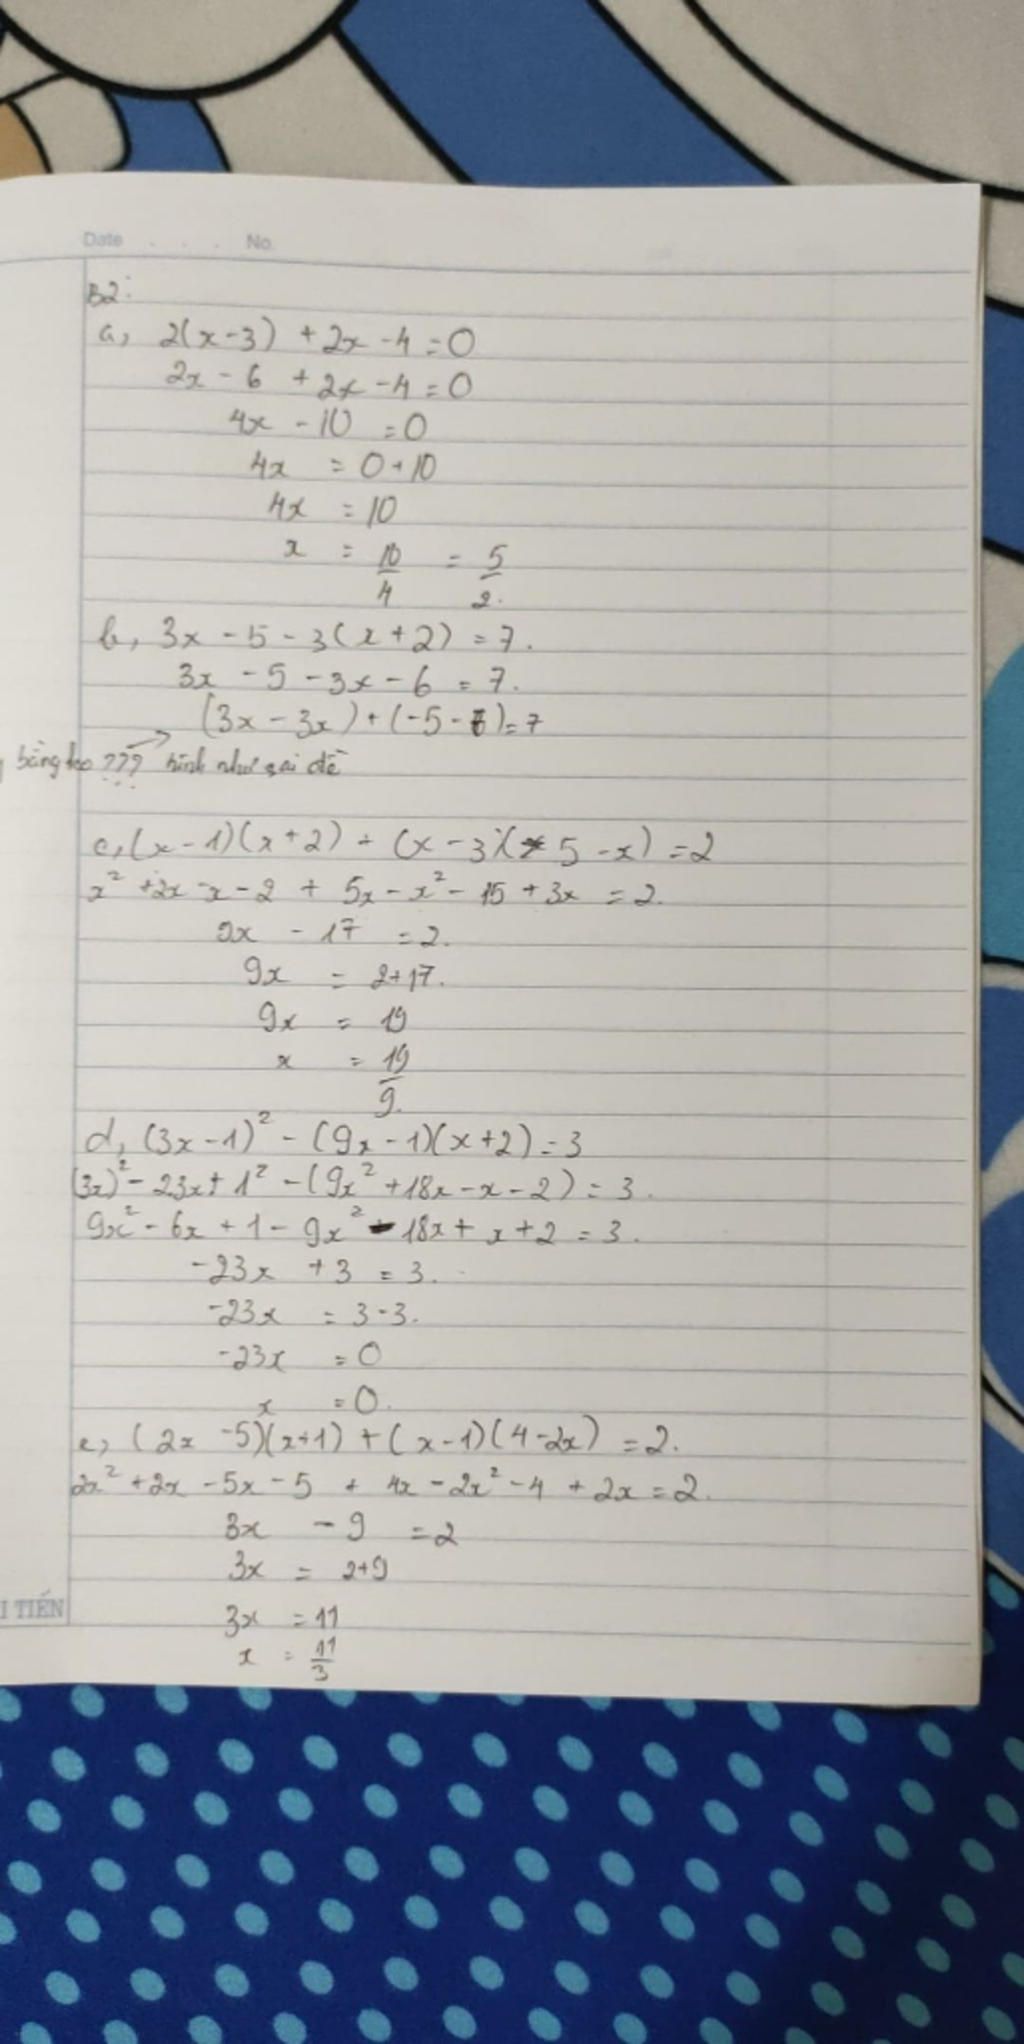 Date . . . . No.
B2:
a, 2(x-3) + 2x - 4 = 0
2x - 6 + 2x - 4 = 0
4x - 10 = 0
4x = 0+10
4x = 10
x = 10/4 = 5/2.
b, 3x - 5 - 3(x+2) = 7.
3x - 5 - 3x - 6 = 7.
(3x - 3x) + (-5 - 6) = 7
bằng ??? hình như sai đề
c, (x - 1)(x + 2) + (x - 3)(5 - x) = 2
x² + 2x - x - 2 + 5x - x² - 15 + 3x = 2.
9x - 17 = 2.
9x = 2+17.
9x = 19
x = 19/9.
d, (3x - 1)² - (9x - 1)(x+2) = 3
(3x)² - 23x + 1² - (9x² + 18x - x - 2) = 3.
9x² - 6x + 1 - 9x² - 18x + x + 2 = 3.
-23x + 3 = 3.
-23x = 3 - 3.
-23x = 0
x = 0.
e, (2x - 5)(x+1) + (x-1)(4-2x) = 2.
2x² + 2x - 5x - 5 + 4x - 2x² - 4 + 2x = 2.
3x - 9 = 2
3x = 2+9
I TIẾN
3x = 11
x = 11/3